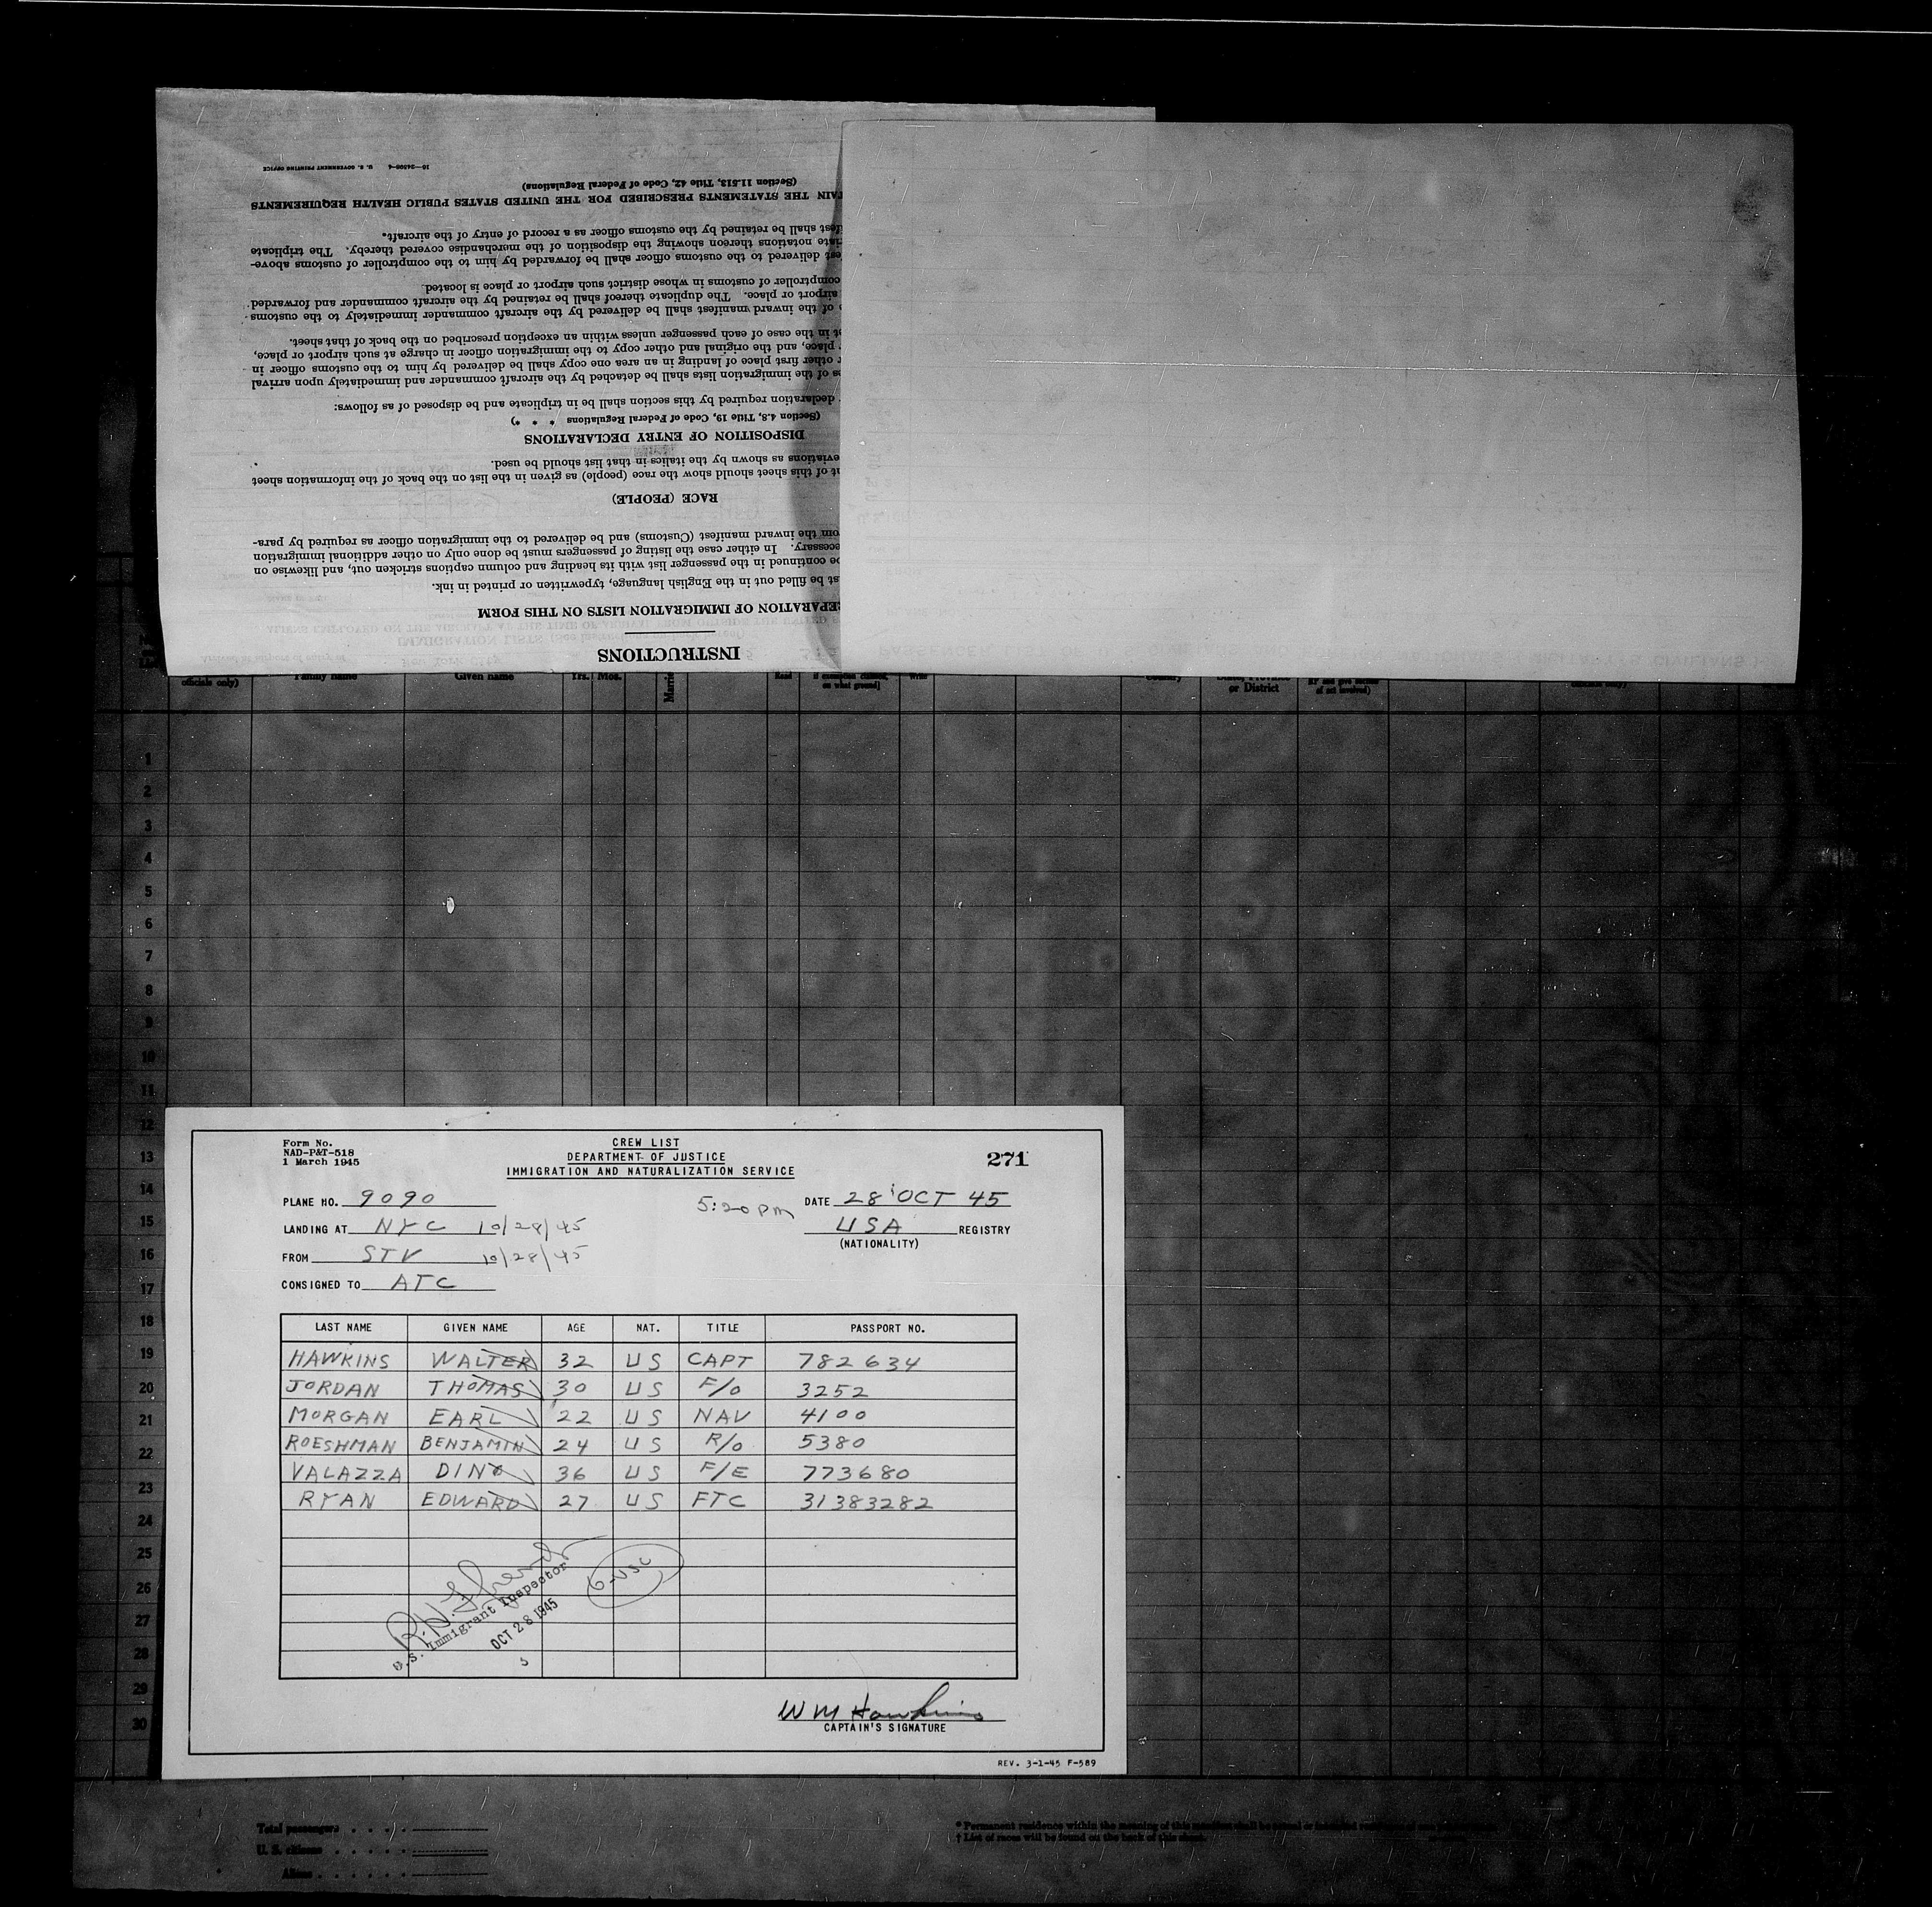 INSTRUCTIONS
EPARATION OF IMMIGRATION LISTS ON THIS FORM
st be filled out in the English language, typewritten or printed in ink.
be continued in the passenger list with its heading and column captions stricken out, and likewise on
ecessary. In either case the listing of passengers must be done only on other additional immigration
om the inward manifest (Customs) and be delivered to the immigration officer as required by para-
RACE (PEOPLE)
t of this sheet should show the race (people) as given in the list on the back of the information sheet
eviations as shown by the italics in that list should be used.
DISPOSITION OF ENTRY DECLARATIONS
(Section 4.8, Title 19, Code of Federal Regulations * * *)
declaration required by this section shall be in triplicate and be disposed of as follows:
s of the immigration lists shall be detached by the aircraft commander and immediately upon arrival
r other first place of landing in an area one copy shall be delivered by him to the customs officer in
r place, and the original and other copy to the immigration officer in charge at such airport or place,
t in the case of each passenger unless within an exception prescribed on the back of that sheet.
of the inward manifest shall be delivered by the aircraft commander immediately to the customs
airport or place. The duplicate thereof shall be retained by the aircraft commander and forwarded
comptroller of customs in whose district such airport or place is located.
est delivered to the customs officer shall be forwarded by him to the comptroller of customs above-
iate notations thereon showing the disposition of the merchandise covered thereby. The triplicate
ifest shall be retained by the customs officer as a record of entry of the aircraft.
TAIN THE STATEMENTS PRESCRIBED FOR THE UNITED STATES PUBLIC HEALTH REQUIREMENTS
(Section 11.513, Title 42, Code of Federal Regulations)
U. S. GOVERNMENT PRINTING OFFICE
officials only) Family name Given name Yrs. Mos. Read Write
or District
1
2
3
4
5
6
7
8
9
10
11
12
13
14
15
16
17
18
19
20
21
22
23
24
25
26
27
28
29
30
Form No.
NAD-P&T-518
1 March 1945
CREW LIST
DEPARTMENT OF JUSTICE
IMMIGRATION AND NATURALIZATION SERVICE
271
PLANE NO. 9090 5:20 PM DATE 28 OCT 45
LANDING AT NYC 10/28/45 USA REGISTRY
(NATIONALITY)
FROM STV 10/28/45
CONSIGNED TO ATC
LAST NAME GIVEN NAME AGE NAT. TITLE PASSPORT NO.
HAWKINS WALTER 32 US CAPT 782634
JORDAN THOMAS 30 US F/O 3252
MORGAN EARL 22 US NAV 4100
ROESHMAN BENJAMIN 24 US R/O 5380
VALAZZA DINO 36 US F/E 773680
RYAN EDWARD 27 US FTC 31383282
6-USC
U.S. Immigrant Inspector
OCT 28 1945
W M Hawkins
CAPTAIN'S SIGNATURE
REV. 3-1-45 F-589
Total passengers
U. S. citizens
Aliens
† List of races will be found on the back of this sheet.